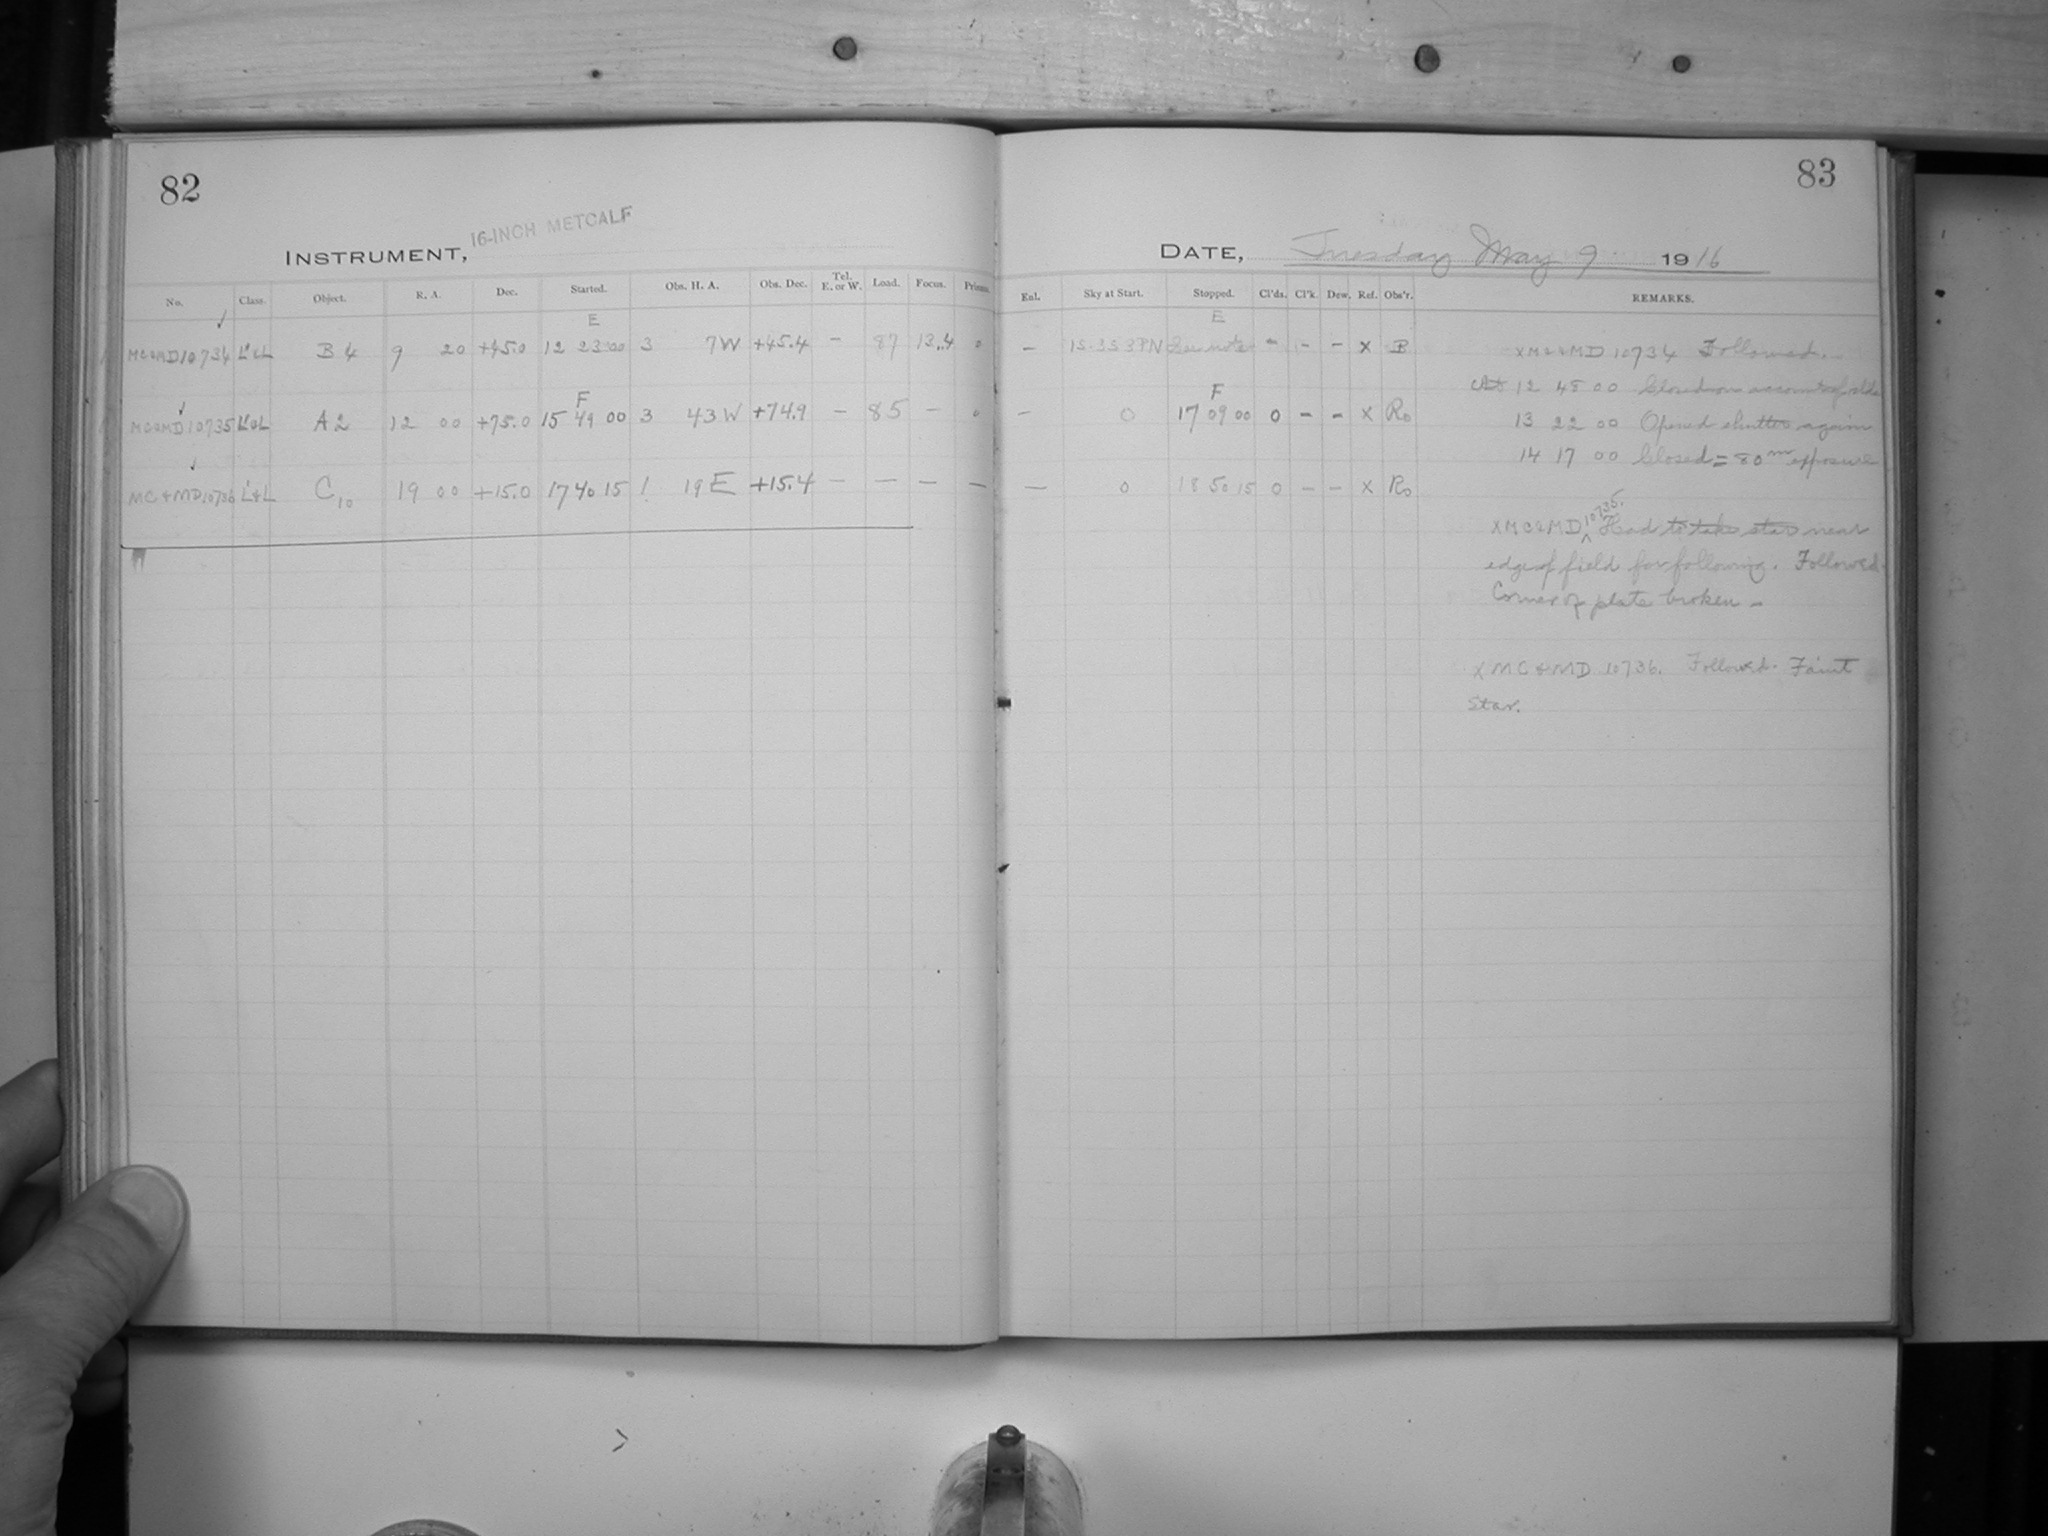 82
INSTRUMENT, 16-INCH METCALF
No. Class. Object. R. A. Dec. Started. Obs. H. A. Obs. Dec. Tel. E. or W. Load. Focus. Prisms.
E
MC&MD10734 L&L B4 9 20 +45.0 12 23 00 3 7W +45.4 – 87 13.4 0
F
MC&MD10735 L&L A2 12 00 +75.0 15 49 00 3 43W +74.9 – 85 – 0
MC&MD10736 L&L C10 19 00 +15.0 17 40 15 1 19E +15.4 – – – –
83
DATE, Tuesday May 9 1916
Enl. Sky at Start. Stopped. Cl'ds. Cl'k. Dew. Ref. Obs'r. REMARKS.
E
– See note – – – X B
F
– 0 17 09 00 0 – – X Ro
– 0 18 50 15 0 – – X Ro
XMC&MD 10734 Followed.
At 12 48 00 Closed on account of clds
13 22 00 Opened shutter again
14 17 00 Closed = 80m exposure
XMC&MD 10735. Had to take star near
edge of field for following. Followed.
Corner of plate broken –
XMC&MD 10736. Followed. Faint
Star.